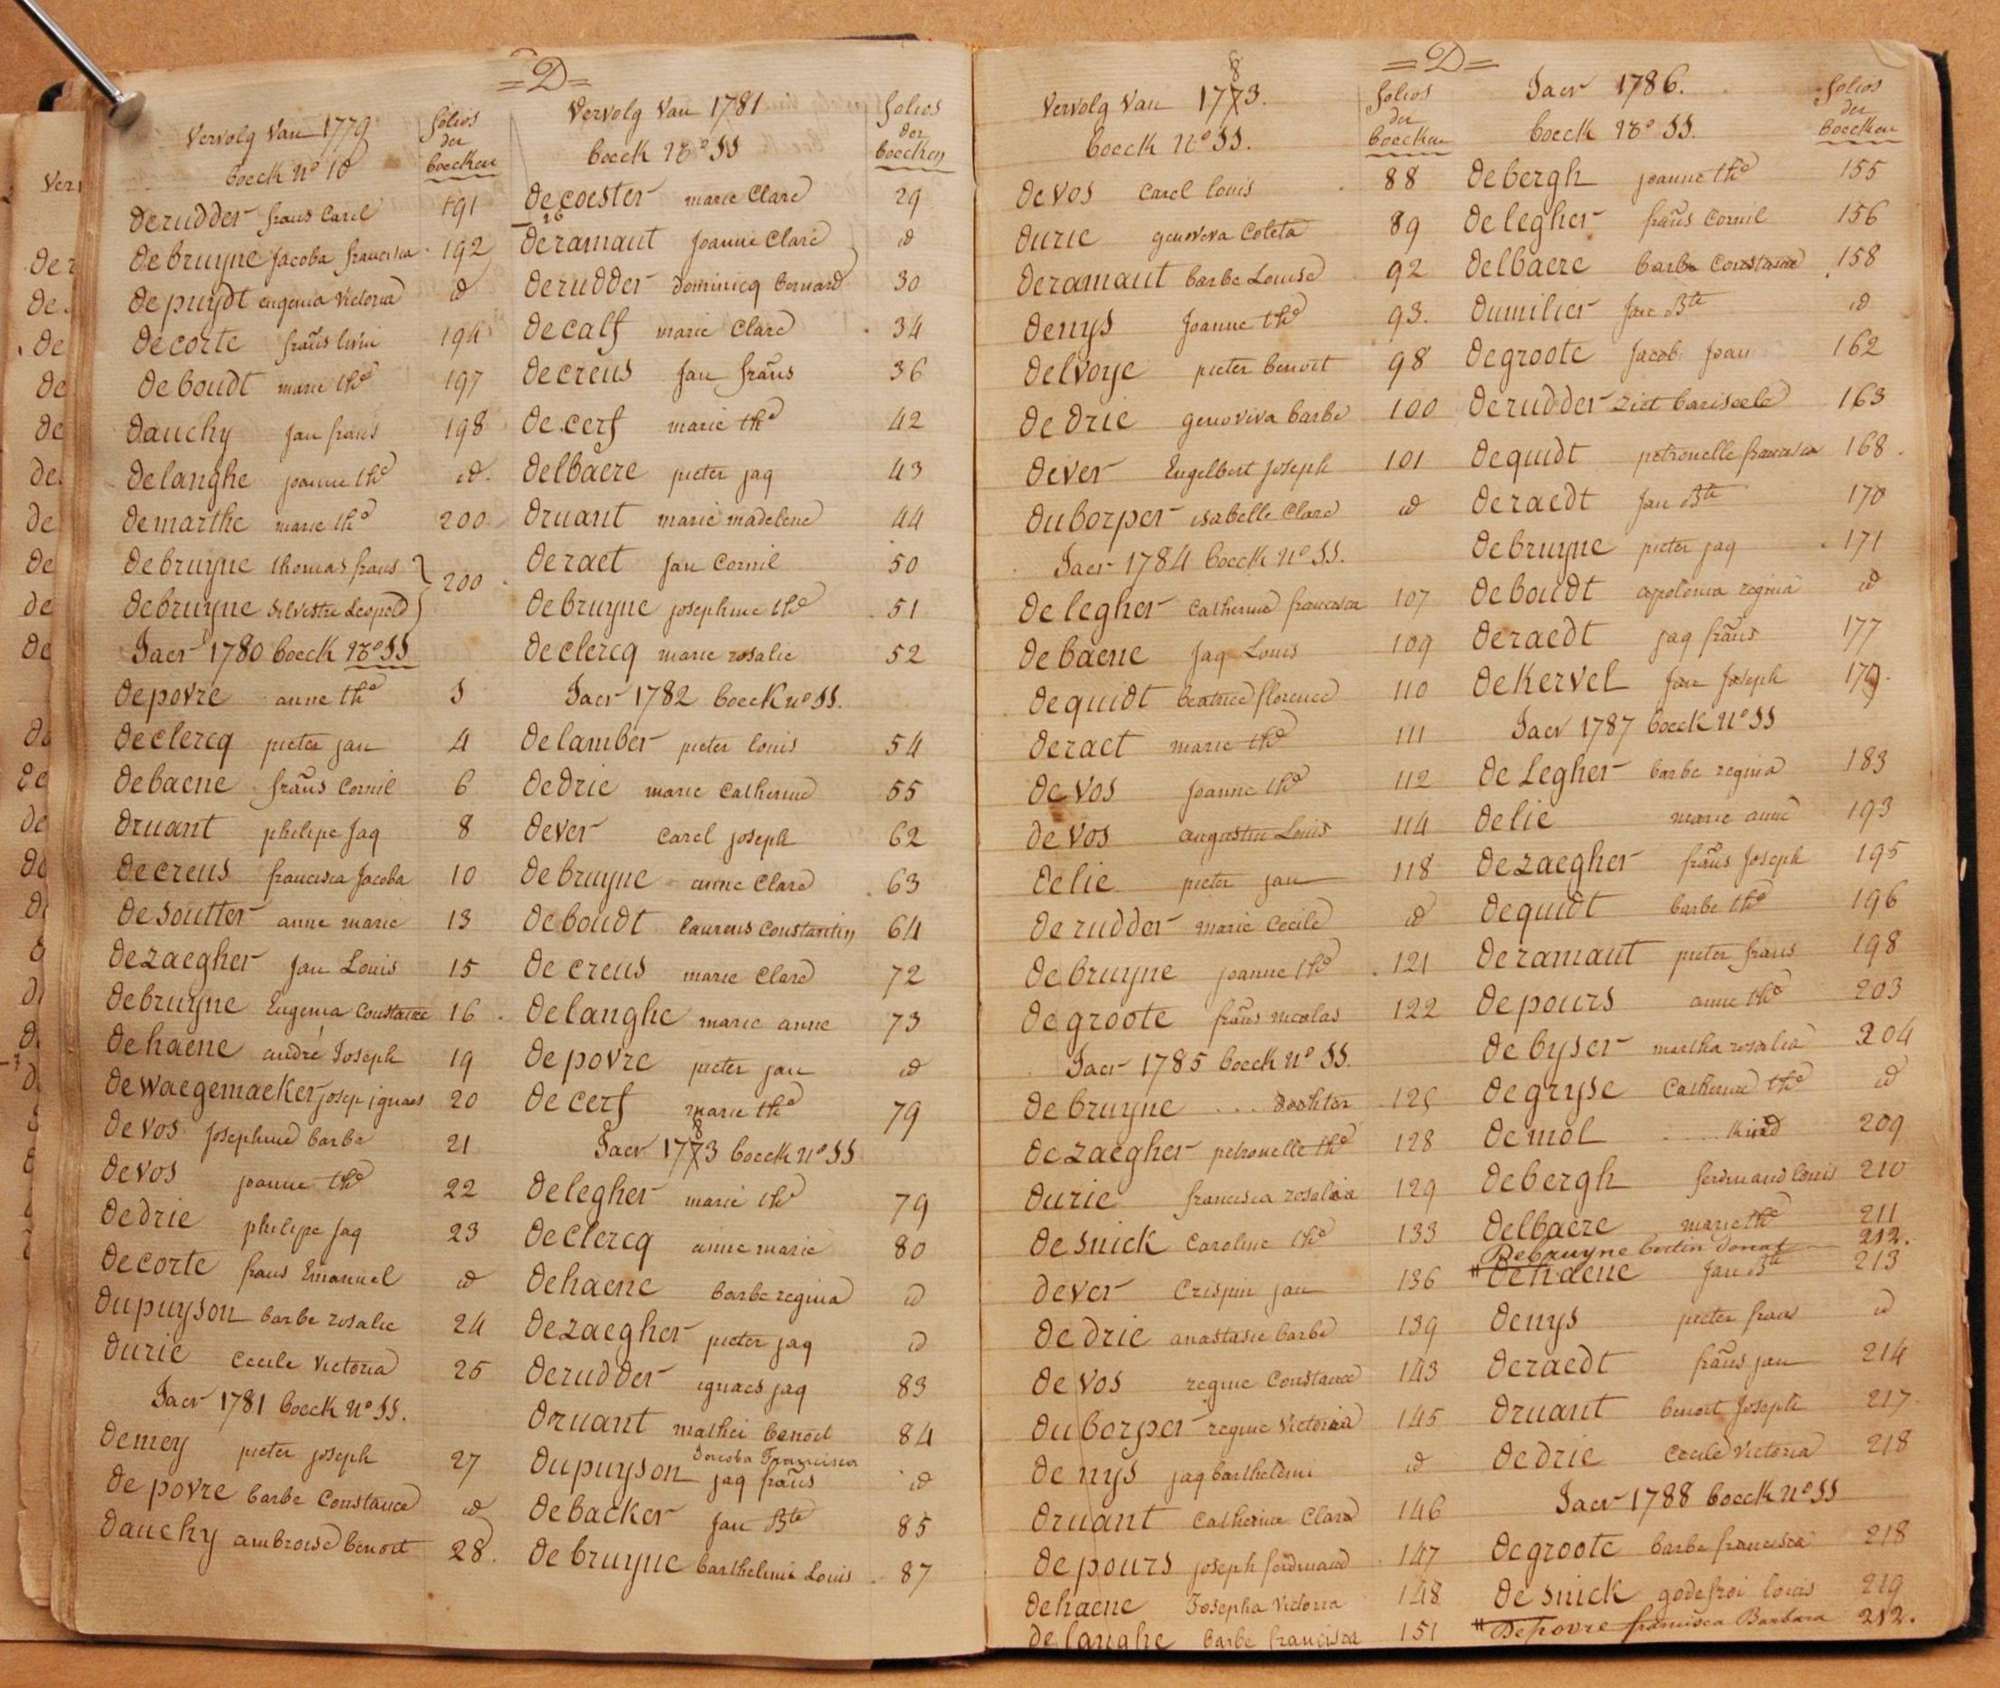 =D=
Vervolg Van 1779
boeck N° 10
folios
der
boecken
derudder frans Carel 191
debruyne Jacoba francisca 192
depuydt eugenia Victoria id
decorte frans livin 194
deboudt marie thé 197
dauchy jan frans 198
delanghe joanne thé id.
demarthe marie thé 200
debruyne thomas frans
200
debruyne Silvestre Leopold
Jaer 1780 boeck N° SS
depovre anne thé 3
declercq pieter jan 4
debaene frans Cornil 6
druant philipe Jaq 8
decreus francisca Jacoba 10
desoutter anne marie 13
dezaegher Jan Louis 15
debruyne Eugenia Constance 16
dehaene andré Joseph 19
dewaegemaeker josep ignaes 20
devos Josephine barbe 21
devos joanne thé 22
dedrie philipe Jaq 23
decorte frans Emanuel id
dupuyson barbe rosalie 24
durie Cecile Victoria 25
Jaer 1781 boeck N° SS.
demey pieter joseph 27
depovre barbe Constance id
dauchy ambroise benoit 28.
Vervolg Van 1781
boeck N° SS
folios
der
boecken
decoester marie Clare 29
26
deramaut Joanne Clare id
derudder dominicq bernard 30
decalf marie Clare 34
decreus Jan frans 36
decerf marie thé 42
delbaere pieter jaq 43
druant marie madelene 44
deraet Jan Cornil 50
debruyne josephine thé 51
declercq marie rosalie 52
Jaer 1782 boeck N° SS.
delamber pieter louis 54
dedrie marie Catherine 55
dever Carel joseph 62
debruyne anne Clare 63
deboudt laurens Constantin 64
decreus marie Clare 72
delanghe marie anne 73
depovre pieter jan id
decerf marie thé 79
8
Jaer 1773 boeck N° SS
delegher marie thé 79
declercq anne marie 80
dehaene barbe regina id
dezaegher pieter jaq id
derudder ignaes jaq 83
druant mathei benoit 84
Jacoba Francisca
dupuyson jaq frans id
debacker Jan Bte 85
debruyne barthelemi Louis 87
=D=
8
Vervolg Van 1773.
boeck N° SS.
folios
der
boecken
devos Carel louis 88
durie genoveva Coleta 89
deramaut barbe Louise 92
denys Joanne thé 93.
delvoye pieter benoit 98
dedrie genoviva barbe 100
dever Engelbert Joseph 101
duborper isabelle Clare id
Jaer 1784 boeck N° SS.
delegher Catherine francisca 107
debaene Jaq Louis 109
dequidt beatrice florence 110
deraet marie thé 111
devos Joanne thé 112
devos augustin Louis 114
delie pieter jan 118
derudder marie Cecile id
debruyne joanne thé 121
degroote frans nicolas 122
Jaer 1785 boeck N° SS.
debruyne ... dochter 125
dezaegher petronelle thé 128
durie francisca rosalia 129
desnick Caroline thé 133
dever Crispin jan 136
dedrie anastasie barbe 139
devos regine Constance 143
duborper regine Victoria 145
denys jaq barthelemi id
druant Catherine Clara 146
depours joseph ferdinand 147
dehaene Josepha Victoria 148
delanghe barbe francisca 151
Jaer 1786.
boeck N° SS.
folios
der
boecken
debergh joanne thé 155
delegher frans Cornil 156
delbaere barbe Constance 158
dumilier Jan Bte id
degroote Jacob Joan 162
derudder ziet bariseele 163
dequidt petronelle francisca 168.
deraedt Jan Bte 170
debruyne pieter jaq 171
deboudt apolonia regina id
deraedt jaq frans 177
dekervel Jan Joseph 179.
Jaer 1787 boeck N° SS
delegher barbe regina 183
delie marie anne 193
dezaegher frans Joseph 195
dequidt barbe thé 196
deramaut pieter frans 198
depours anne thé 203
debyser martha rosalia 204
degryse Catherine thé id
demol ... kind 209
debergh ferdinand louis 210
delbaere marie thé 211
# Debruyne bertin donat 212.
dehaene Jan Bte 213
denys pieter frans id
deraedt frans jan 214
druant benoit Joseph 217
dedrie Cecile Victoria 218
Jaer 1788 boeck N° SS
degroote barbe francisca 218
desnick godefroi louis 219
# Depovre francisca Barbara 212.